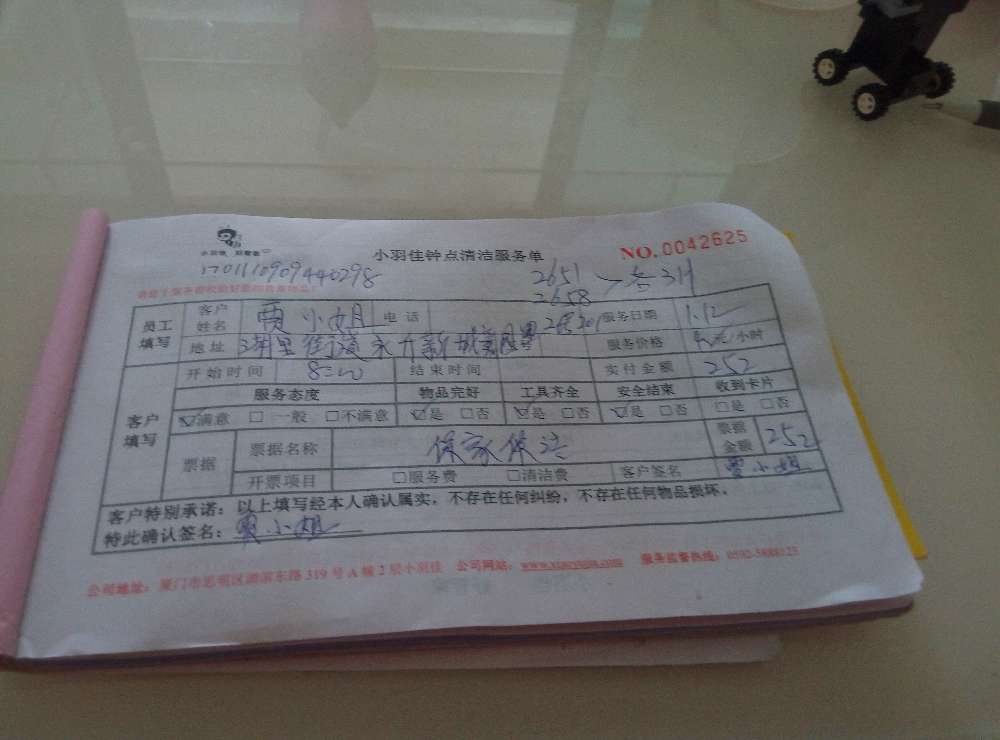 小羽佳钟点清洁服务单 NO.0042625
170111090944 0298 2651 2658 各3H
员工填写 客户姓名 贾小姐 电话 服务日期 1.12
地址 服务价格 元/小时
开始时间 8:00 结束时间 实付金额 252
客户填写 服务态度 物品完好 工具齐全 安全结束 收到卡片
☑满意 □一般 □不满意 ☑是 □否 ☑是 □否 ☑是 □否 □是 □否
票据 票据名称 票据金额 252
开票项目 □服务费 □清洁费 客户签名 贾小姐
客户特别承诺：以上填写经本人确认属实，不存在任何纠纷，不存在任何物品损坏，
特此确认签名：贾小姐
公司地址：厦门市思明区湖滨东路319号A幢2层小羽佳 公司网站： 服务监督热线：